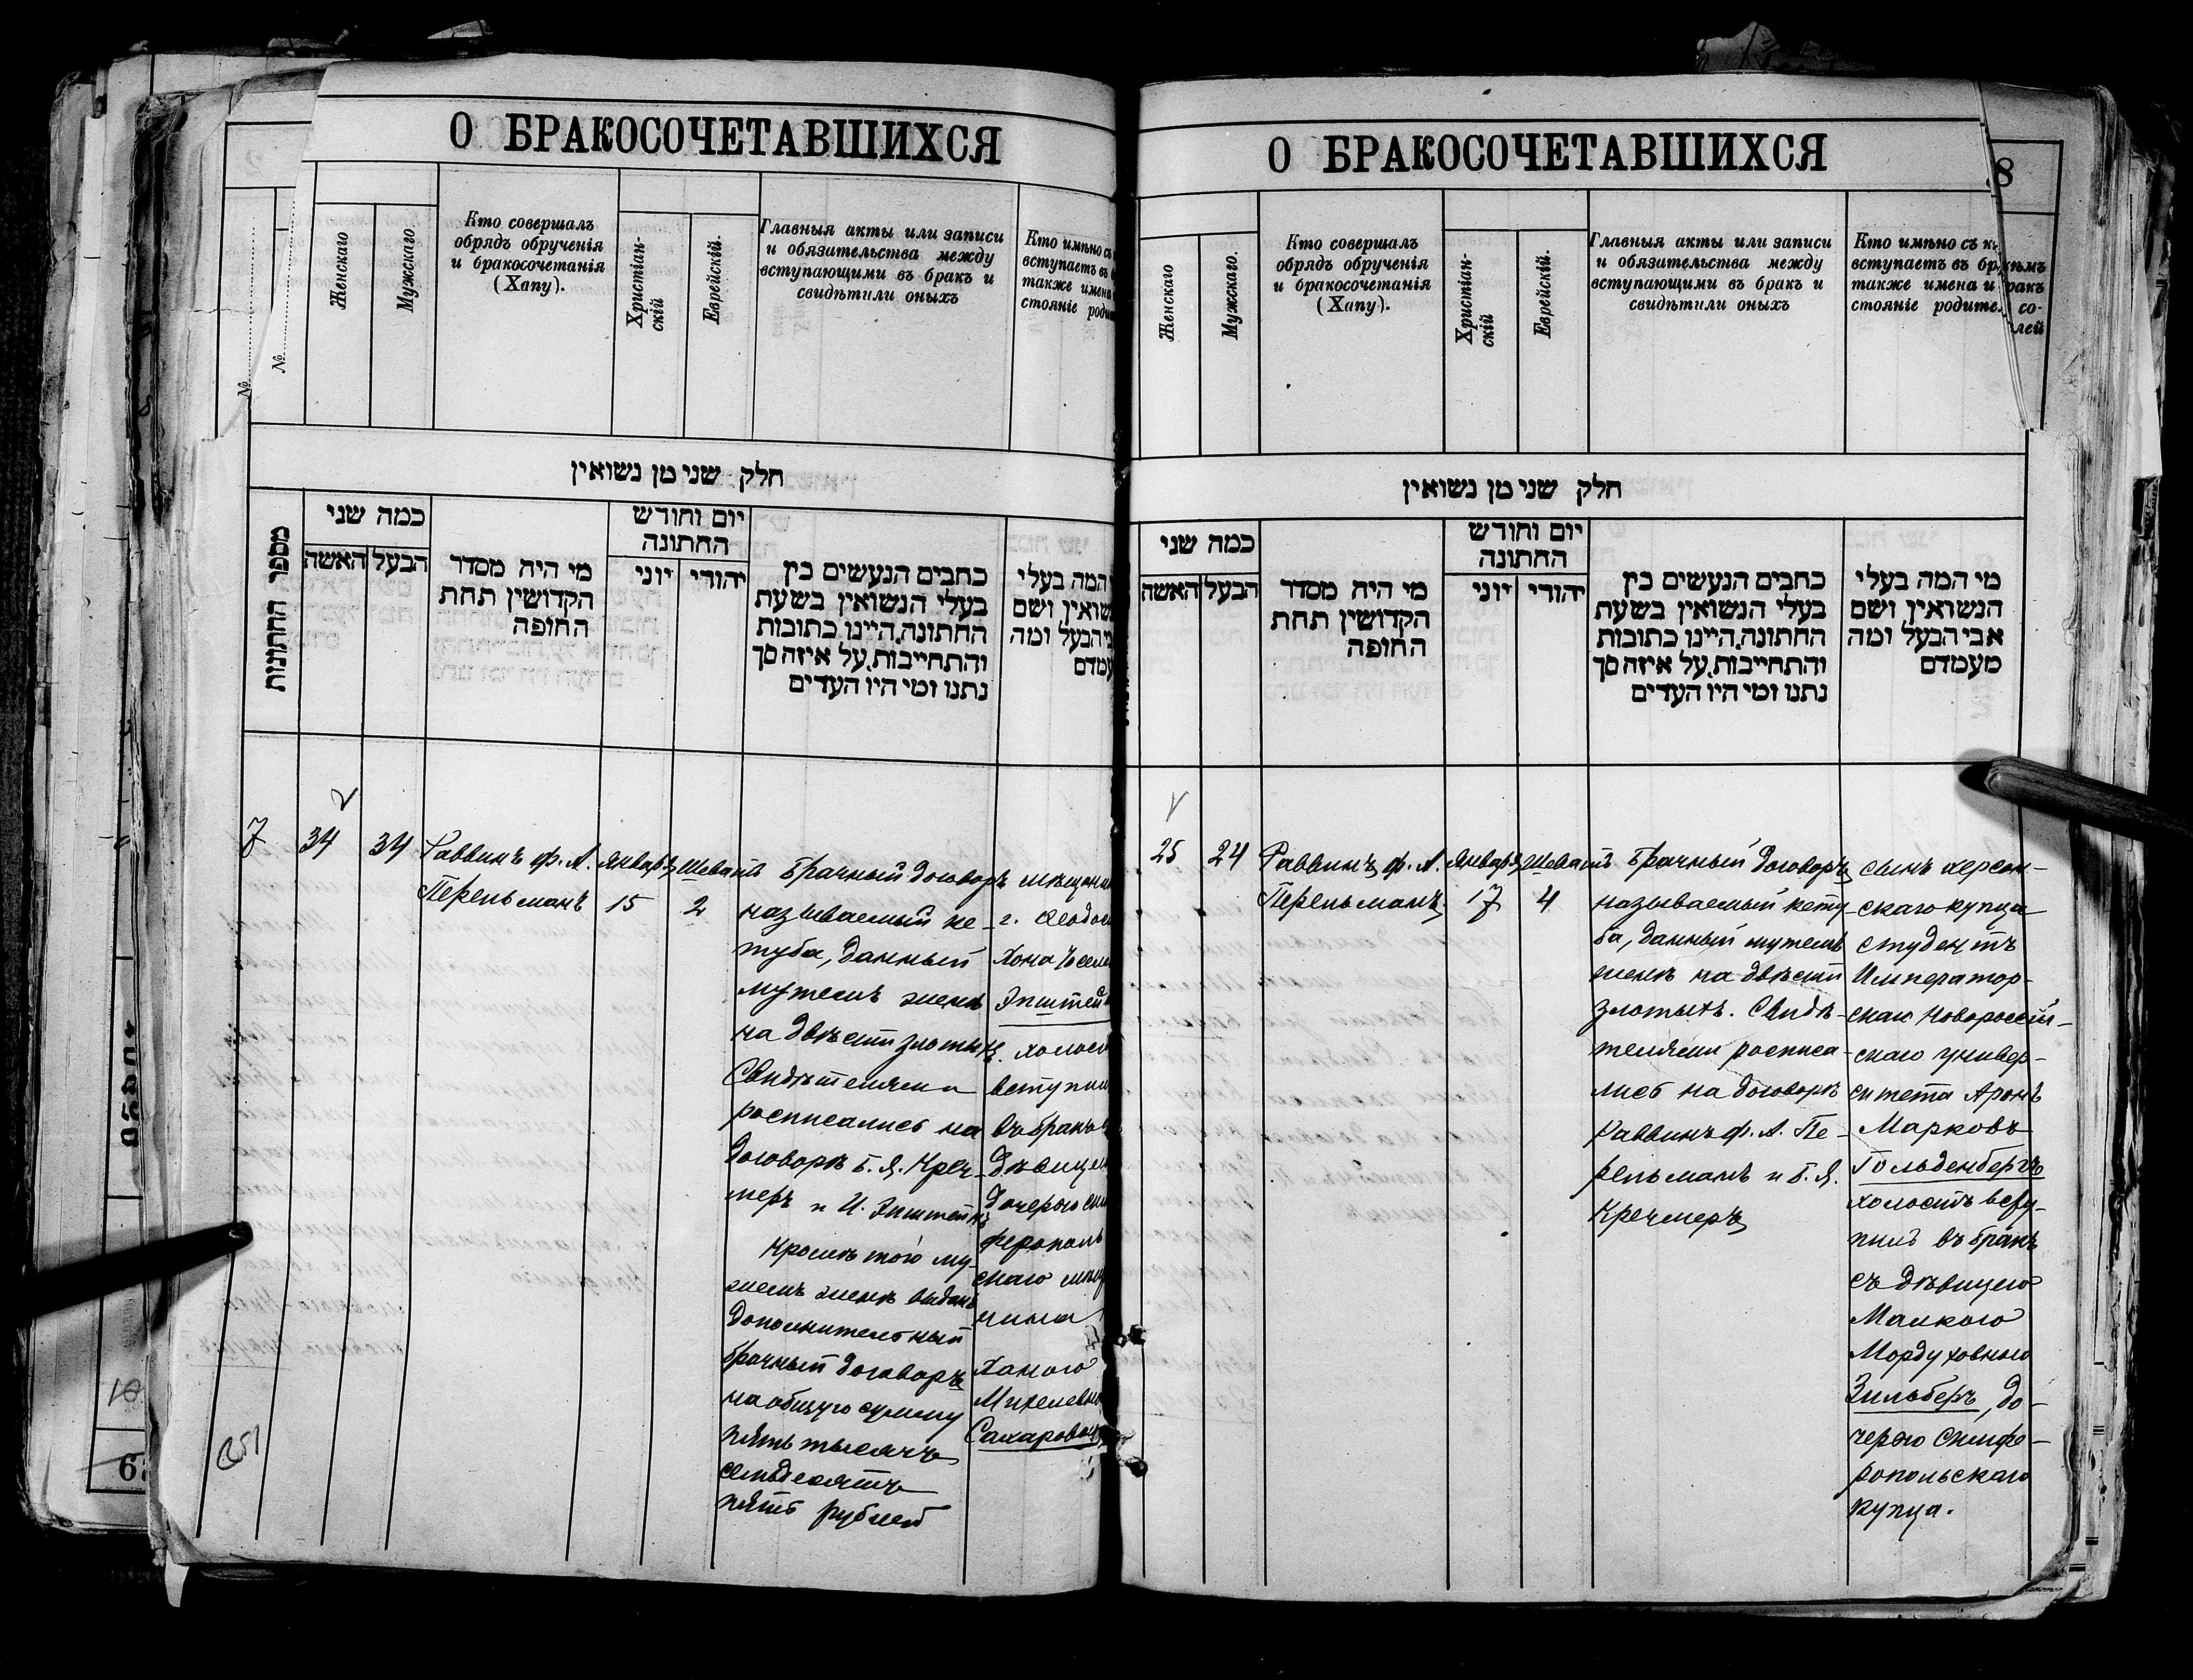 О БРАКОСОЧЕТАВШИХСЯ
№
№
Женскаго
Мужскаго
Кто совершалъ
обрядъ обрученія
и бракосочетанія
(Хапу).
Христіан-
скій
Еврейскій.
Главныя акты или записи
и обязательства между
вступающими въ бракъ и
свидѣтили оныхъ
Кто имѣно съ
вступаетъ въ
также имена
стояніе роди
חלק שני מן נשואין
מספר החתונות
כמה שני
האשה
הבעל
מי היה מסדר
הקדושין תחת
החופה
יום וחודש
החתונה
יוני
יהודי
כתבים הנעשים בין
בעלי הנשואין בשעת
החתונה. היינו כתובות
והתחייבות. על איזה סך
נתנו ומי היו העדים
המה בעלי
שואין ושם
הבעל ומה
עמדם
7
34
34
Раввинъ Ф. А.
Перельманъ
Январь
15
Шеватъ
2
Брачный договоръ
называемый ке-
туба, данный
мужемъ женѣ
на двѣсти злотыхъ.
Свидѣтелями
росписались на
договорѣ Б. Я. Креч-
меръ и И. Эпштейнъ
Кромѣ того му-
жемъ женѣ выданъ
дополнительный
брачный договоръ
на общую сумму
пять тысячъ
семьдесятъ
пять рублей
мѣщани
г. Ѳеодос
Хона Іосел
Эпштейн
холост
вступил
въ бракъ
дѣвицею
дочерью сим
ферополь
скаго мѣщ
нина
Ханою
Михелевно
Сахарович
251
О БРАКОСОЧЕТАВШИХСЯ
8
Женскаго
Мужскаго.
Кто совершалъ
обрядъ обрученія
и бракосочетанія
(Хапу).
Христіан-
скій
Еврейскій.
Главныя акты или записи
и обязательства между
вступающими въ бракъ и
свидѣтили оныхъ
Кто имѣно съ кѣмъ
вступаетъ въ бракъ
также имена и со-
стояніе родителей
חלק שני מן נשואין
כמה שני
האשה
הבעל
מי היה מסדר
הקדושין תחת
החופה
יום וחודש
החתונה
יוני
יהודי
כתבים הנעשים בין
בעלי הנשואין בשעת
החתונה. היינו כתובות
והתחייבות. על איזה סך
נתנו ומי היו העדים
מי המה בעלי
הנשואין ושם
אבי הבעל ומה
מעמדם
25
24
Раввинъ Ф. А.
Перельманъ
Январь
17
Шеватъ
4
Брачный договоръ
называемый кету-
ба, данный мужемъ
женѣ на двѣсти
злотыхъ. Свидѣ-
телями росписа-
лись на договорѣ
Раввинъ Ф. А. Пе-
рельманъ и Б. Я.
Кречмеръ
сынъ херсон-
скаго купца
студентъ
Император-
скаго Новороссій-
скаго универ-
ситета Аронъ
Марковъ
Гольденбергъ
холостъ всту-
пилъ въ бракъ
съ дѣвицею
Малкою
Мордуховною
Зильберъ, до-
черью симфе-
ропольскаго
купца.